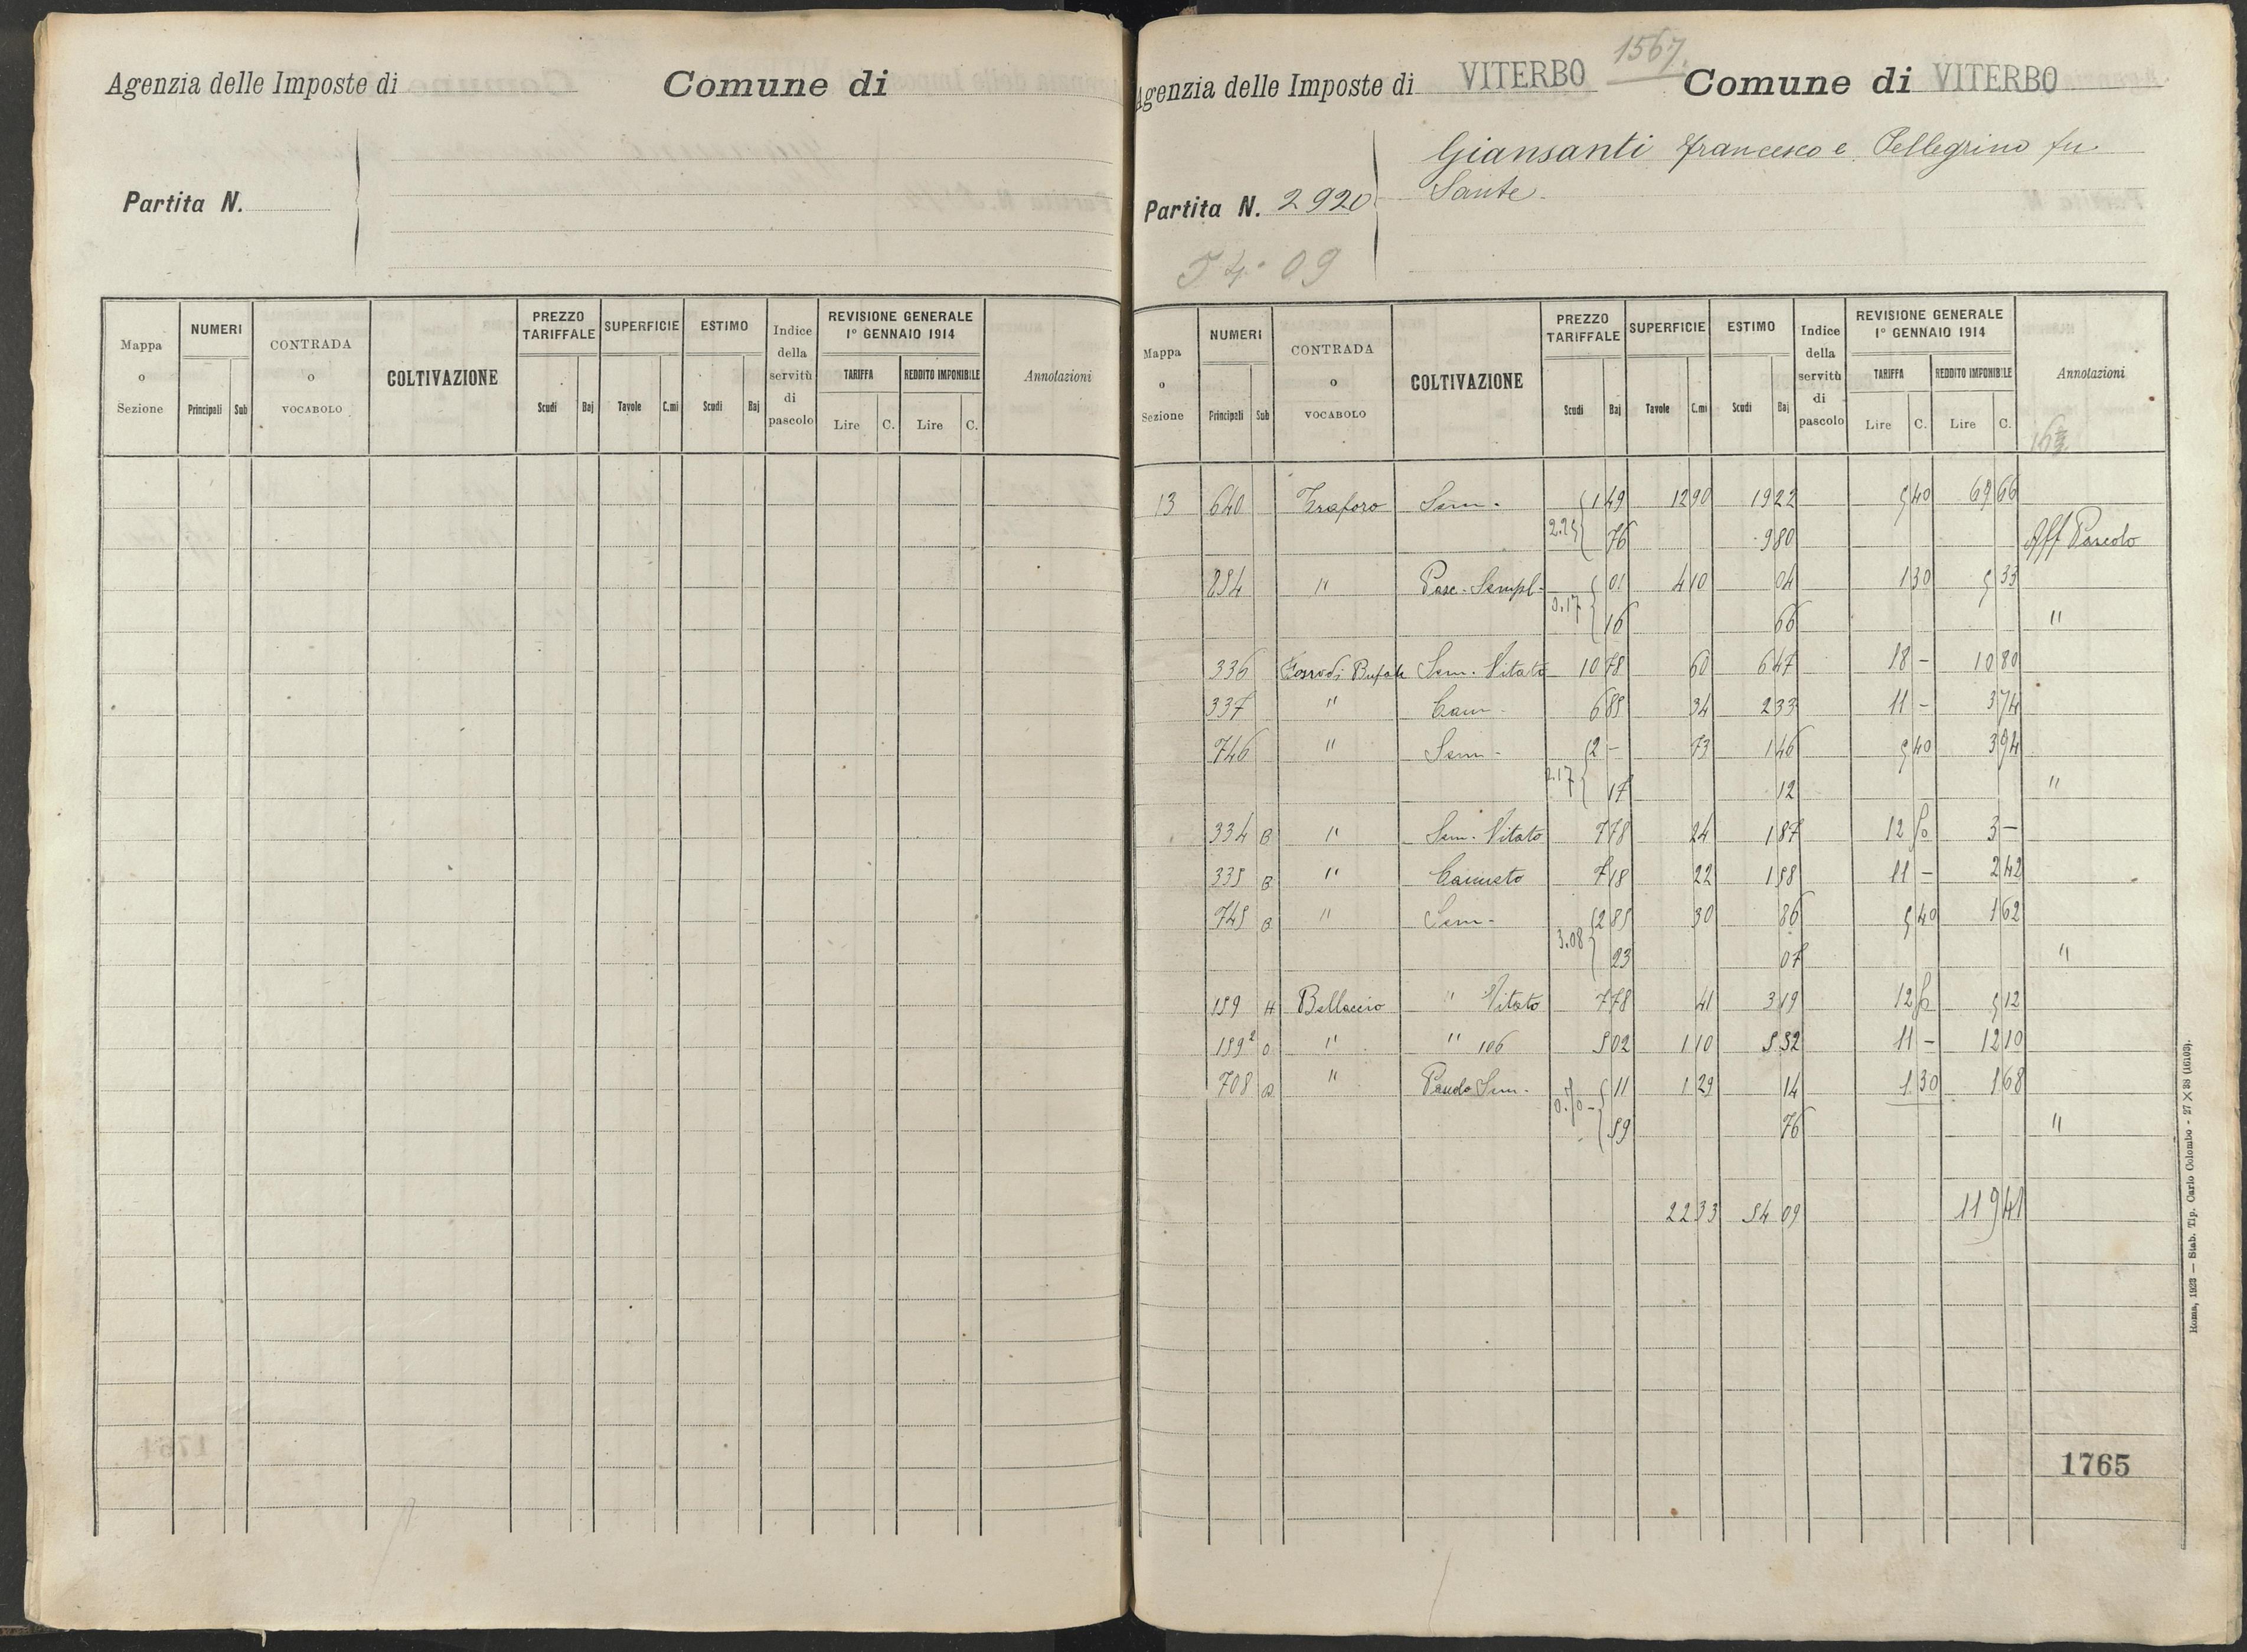 Agenzia delle Imposte di
Comune di
Partita N.
Mappa o Sezione
NUMERI
Principali Sub
CONTRADA o VOCABOLO
COLTIVAZIONE
PREZZO TARIFFALE
Scudi Baj
SUPERFICIE
Tavole C.mi
ESTIMO
Scudi Baj
Indice della servitù di pascolo
REVISIONE GENERALE
1° GENNAIO 1914
TARIFFA REDDITO IMPONIBILE
Lire C. Lire C.
Annotazioni
1567.
Agenzia delle Imposte di VITERBO Comune di VITERBO
Giansanti Francesco e Pellegrino fu
Sante.
Partita N. 2920
54.09
Mappa o Sezione
NUMERI
Principali Sub
CONTRADA o VOCABOLO
COLTIVAZIONE
PREZZO TARIFFALE
Scudi Baj
SUPERFICIE
Tavole C.mi
ESTIMO
Scudi Baj
Indice della servitù di pascolo
REVISIONE GENERALE
1° GENNAIO 1914
TARIFFA REDDITO IMPONIBILE
Lire C. Lire C.
Annotazioni
13 640 Traforo Sem. 1 49 12 90 19 22 5 40 69 66
2.25 76 9 80 Aff Pascolo
254 " Pasc. Sempl. 01 4 10 04 1 30 5 33
0.17 16 66 "
336 Sem. Vitato 10 78 60 6 47 18 - 10 80
337 " Cann. 6 85 34 2 33 11 - 3 74
746 " Sem. 2 - 73 1 46 5 40 3 94
2.17 17 12 "
334 B " Sem. Vitato 7 78 24 1 87 12 50 3 -
335 B " Canneto 7 18 22 1 58 11 - 2 42
745 B " Sem. 2 85 30 86 5 40 1 62
3.08 23 07 "
159 H Bellaccio " Vitato 7 78 41 3 19 12 50 5 12
159² O " " 106 5 02 1 10 5 52 11 - 12 10
708 " Sem. 11 1 29 14 1 30 1 68
0.70 59 76 "
22 33 54 09 119 41
1765
Roma, 1923 — Stab. Tip. Carlo Colombo - 27 X 38 (10103).